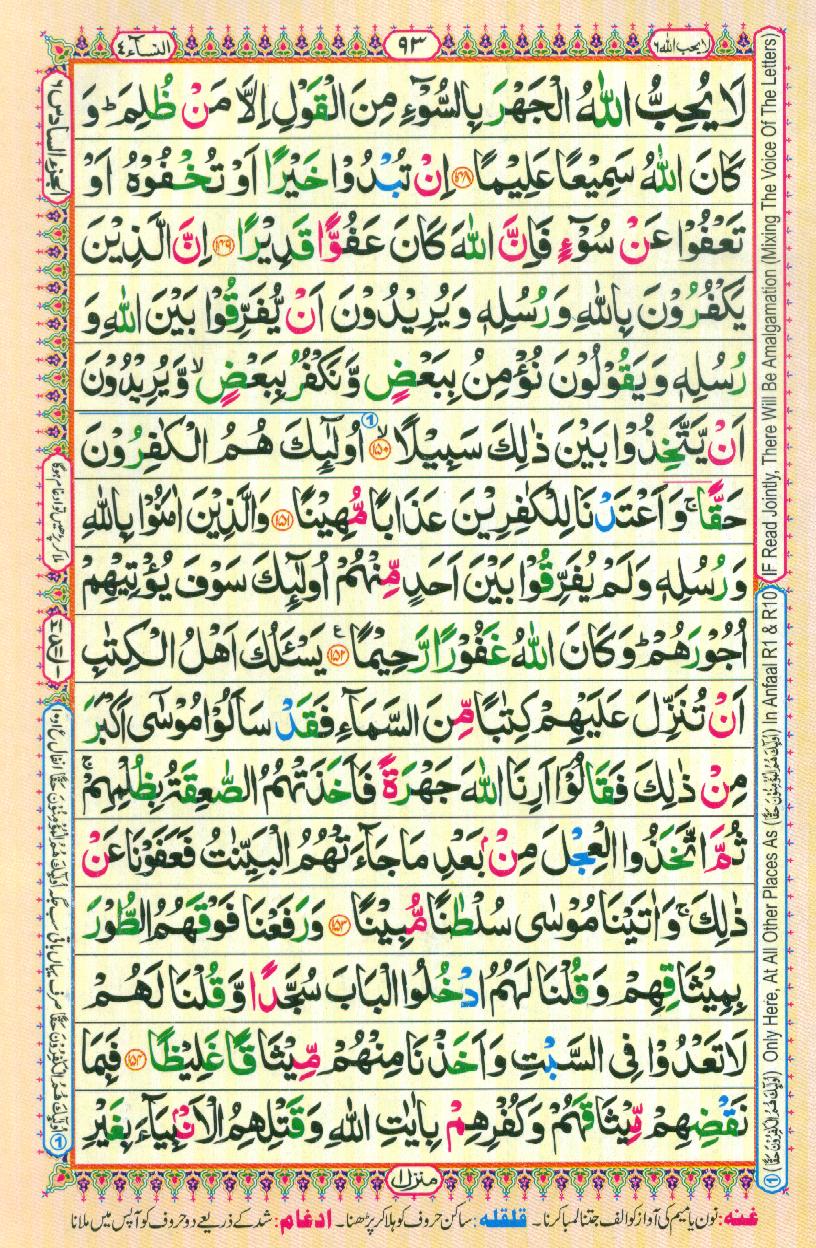 لا یحب اللہ ٦
٩٣
النسآء ٤
لَا يُحِبُّ اللّٰهُ الْجَهْرَ بِالسُّوْٓءِ مِنَ الْقَوْلِ اِلَّا مَنْ ظُلِمَ ؕ وَ
كَانَ اللّٰهُ سَمِيْعًا عَلِيْمًا ﴿۱۴۸﴾ اِنْ تُبْدُوْا خَيْرًا اَوْ تُخْفُوْهُ اَوْ
تَعْفُوْا عَنْ سُوْٓءٍ فَاِنَّ اللّٰهَ كَانَ عَفُوًّا قَدِيْرًا ﴿۱۴۹﴾ اِنَّ الَّذِيْنَ
يَكْفُرُوْنَ بِاللّٰهِ وَرُسُلِهٖ وَيُرِيْدُوْنَ اَنْ يُّفَرِّقُوْا بَيْنَ اللّٰهِ وَ
رُسُلِهٖ وَيَقُوْلُوْنَ نُؤْمِنُ بِبَعْضٍ وَّنَكْفُرُ بِبَعْضٍ ۙ وَّيُرِيْدُوْنَ
اَنْ يَّتَّخِذُوْا بَيْنَ ذٰلِكَ سَبِيْلًا ۙ﴿۱۵۰﴾ ① اُولٰٓئِكَ هُمُ الْكٰفِرُوْنَ
حَقًّا ۚ وَاَعْتَدْنَا لِلْكٰفِرِيْنَ عَذَابًا مُّهِيْنًا ﴿۱۵۱﴾ وَالَّذِيْنَ اٰمَنُوْا بِاللّٰهِ
وَرُسُلِهٖ وَلَمْ يُفَرِّقُوْا بَيْنَ اَحَدٍ مِّنْهُمْ اُولٰٓئِكَ سَوْفَ يُؤْتِيْهِمْ
اُجُوْرَهُمْ ؕ وَكَانَ اللّٰهُ غَفُوْرًا رَّحِيْمًا ﴿۱۵۲﴾ ع يَسْئَلُكَ اَهْلُ الْكِتٰبِ
اَنْ تُنَزِّلَ عَلَيْهِمْ كِتٰبًا مِّنَ السَّمَآءِ فَقَدْ سَاَلُوْا مُوْسٰٓى اَكْبَرَ
مِنْ ذٰلِكَ فَقَالُوْٓا اَرِنَا اللّٰهَ جَهْرَةً فَاَخَذَتْهُمُ الصّٰعِقَةُ بِظُلْمِهِمْ ۚ
ثُمَّ اتَّخَذُوا الْعِجْلَ مِنْۢ بَعْدِ مَا جَآءَتْهُمُ الْبَيِّنٰتُ فَعَفَوْنَا عَنْ
ذٰلِكَ ۚ وَاٰتَيْنَا مُوْسٰى سُلْطٰنًا مُّبِيْنًا ﴿۱۵۳﴾ وَرَفَعْنَا فَوْقَهُمُ الطُّوْرَ
بِمِيْثَاقِهِمْ وَقُلْنَا لَهُمُ ادْخُلُوا الْبَابَ سُجَّدًا وَّقُلْنَا لَهُمْ
لَا تَعْدُوْا فِى السَّبْتِ وَاَخَذْنَا مِنْهُمْ مِّيْثَاقًا غَلِيْظًا ﴿۱۵۴﴾ فَبِمَا
نَقْضِهِمْ مِّيْثَاقَهُمْ وَكُفْرِهِمْ بِاٰيٰتِ اللّٰهِ وَقَتْلِهِمُ الْاَنْۢبِيَآءَ بِغَيْرِ
منزل ۱
غنه: نون یا میم کی آواز کو الف جتنا لمبا کرنا۔ قلقله: ساکن حروف کو ہلا کر پڑھنا۔ ادغام: شد کے ذریعے دو حروف کو آپس میں ملانا
① (اُولٰٓئِكَ هُمُ الْكٰفِرُوْنَ حَقًّا) Only Here, At All Other Places As (اُولٰٓئِكَ هُمُ الْمُؤْمِنُوْنَ حَقًّا) In Anfaal R1 & R10
(IF Read Jointly, There Will Be Amalgamation (Mixing The Voice Of The Letters)
الجزء السادس ٦
① اُولٰٓئِكَ هُمُ الْكٰفِرُوْنَ حَقًّا صرف یہاں باقی سب جگہ اُولٰٓئِكَ هُمُ الْمُؤْمِنُوْنَ حَقًّا